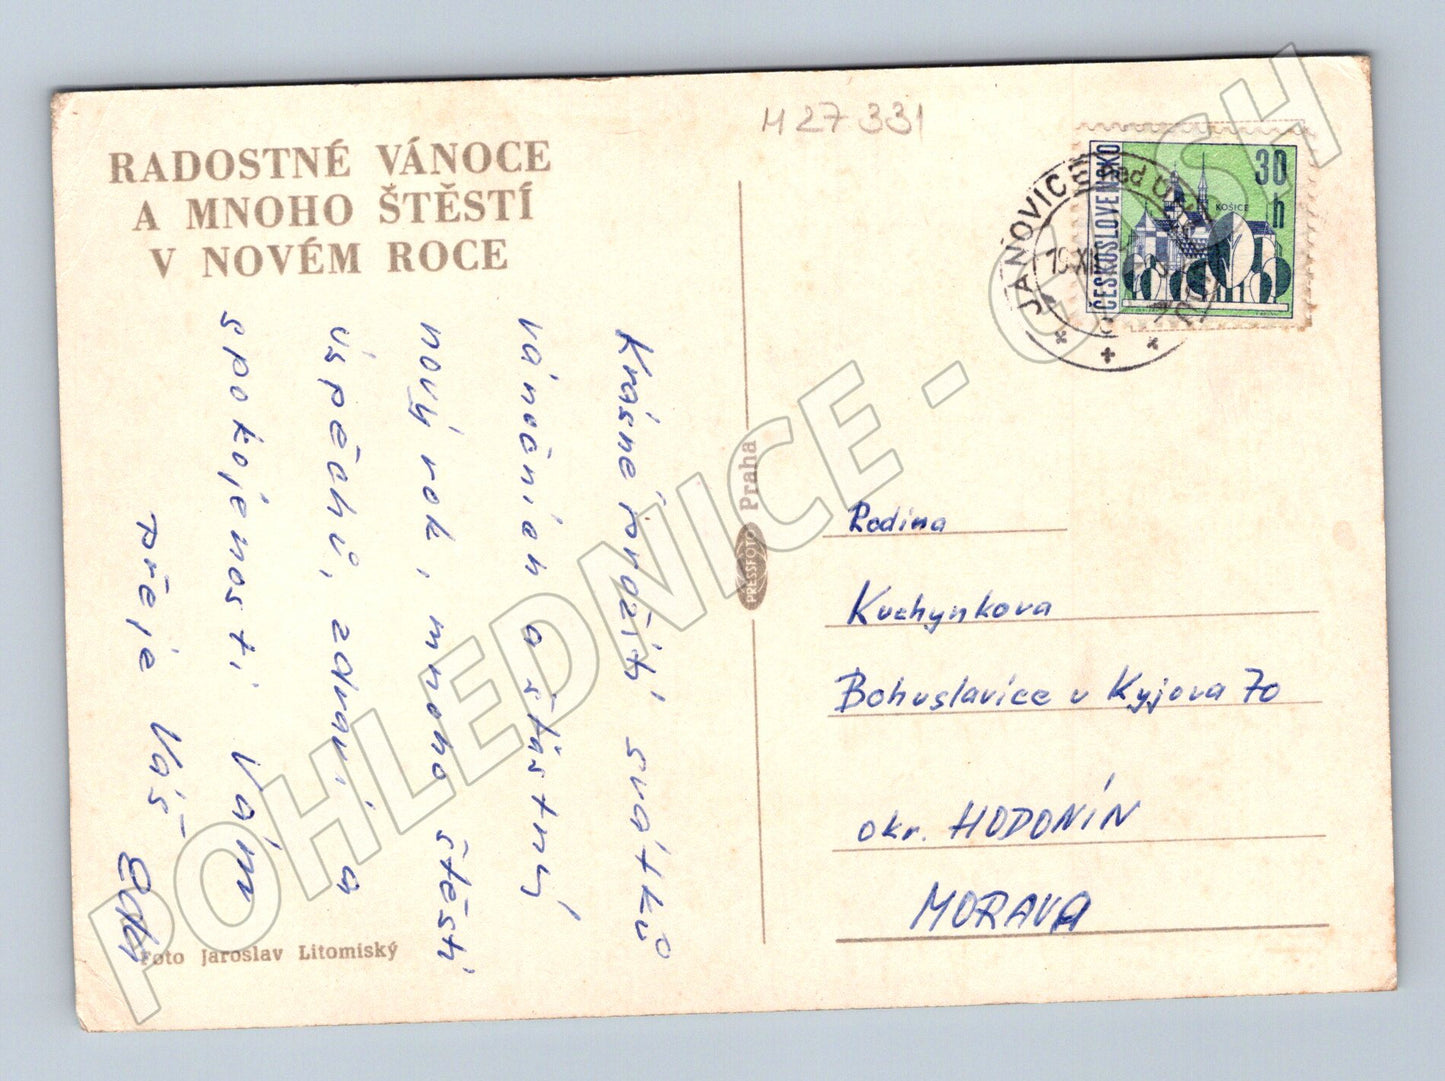 M 27 331
RADOSTNÉ VÁNOCE
A MNOHO ŠTĚSTÍ
V NOVÉM ROCE
Krásné prožití svátků
vánočních a štastný
nový rok, mnoho štěstí
úspěchů, zdraví a
spokojenosti Vám
přeje Váš
Foto Jaroslav Litomiský
PRESSFOTO Praha
ČESKOSLOVENSKO
30 h
KOŠICE
JANOVICE nad
Rodina
Kuchynkova
Bohuslavice u Kyjova 70
okr. HODONÍN
MORAVA
POHLEDNICE -